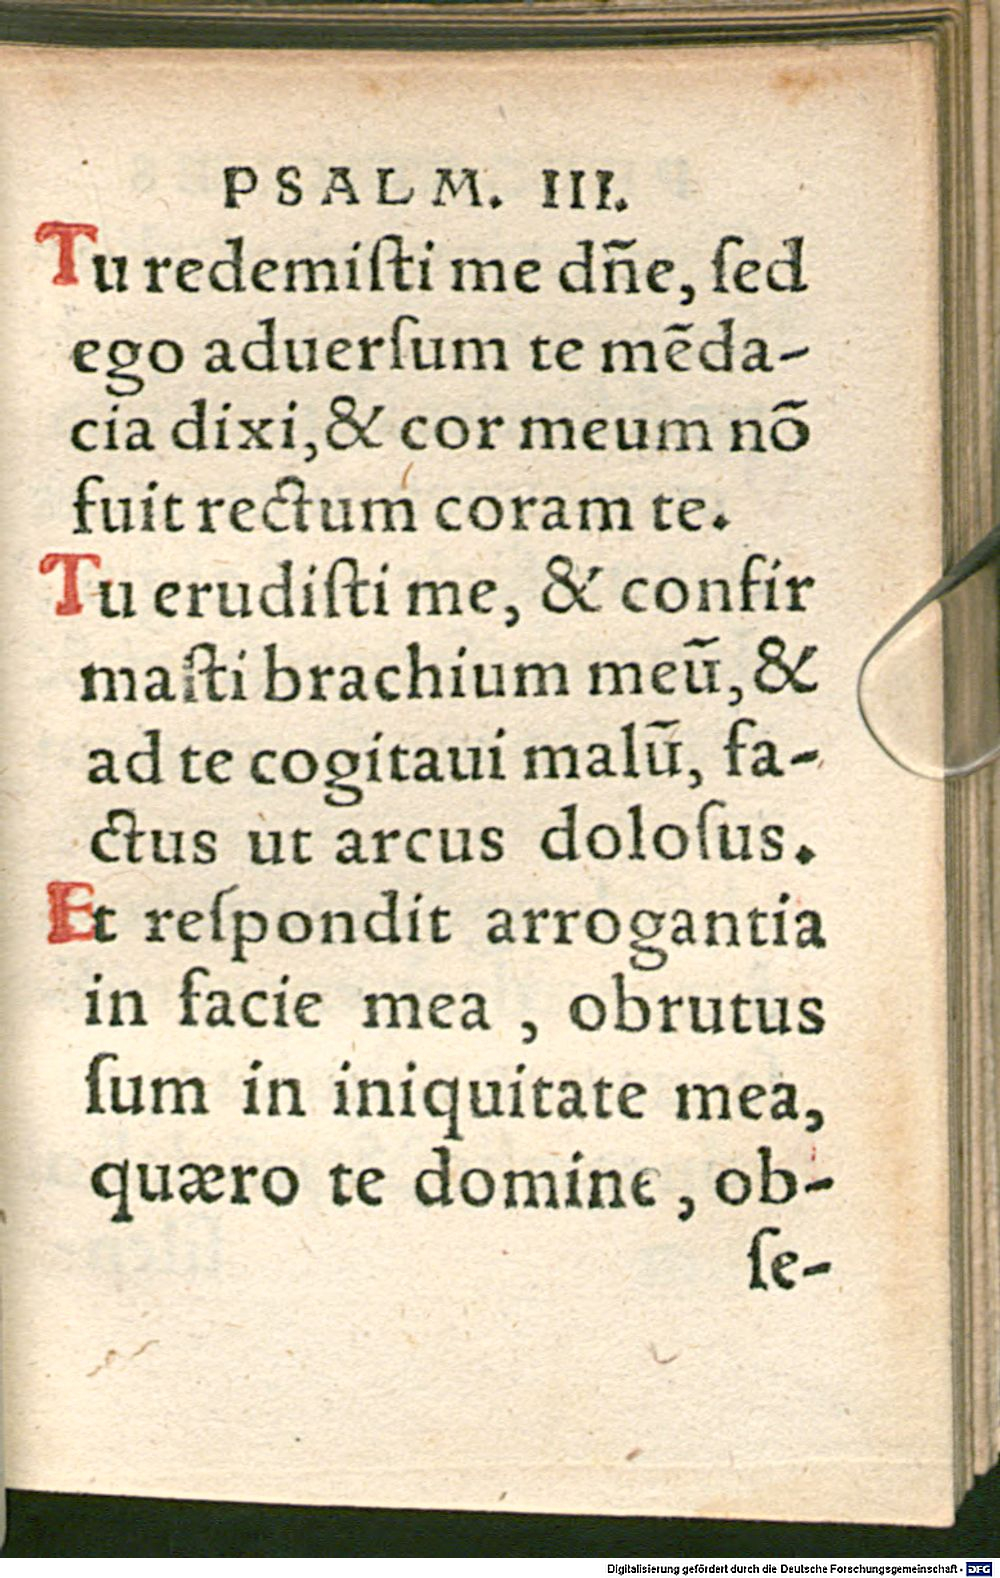 PSALM. III.
Tu redemiſti me dñe, ſed
ego aduerſum te mẽda-
cia dixi, & cor meum nõ
fuit rectum coram te.
Tu erudiſti me, & confir
maſti brachium meũ, &
ad te cogitaui malũ, fa-
ctus ut arcus doloſus.
Et reſpondit arrogantia
in facie mea , obrutus
ſum in iniquitate mea,
quæro te domine , ob-
ſe-
Digitalisierung gefördert durch die Deutsche Forschungsgemeinschaft - DFG